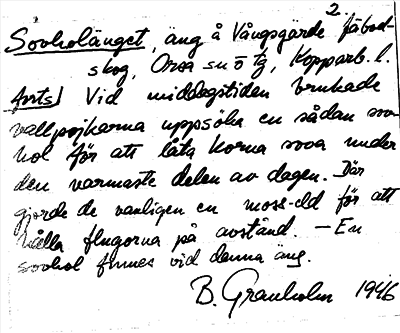 2.
Sovholänget, äng å Vångsgärde fäbod-
skog, Orsa sn ö tg, Kopparb. l.
forts) Vid middagstiden brukade
vallpojkarna uppsöka en sådan sov-
hol för att låta korna sova under
den varmaste delen av dagen. Där
gjorde de vanligen en mose-eld för att
hålla flugorna på avstånd. — En
sovhol finnes vid denna äng.
B. Granholm 1946